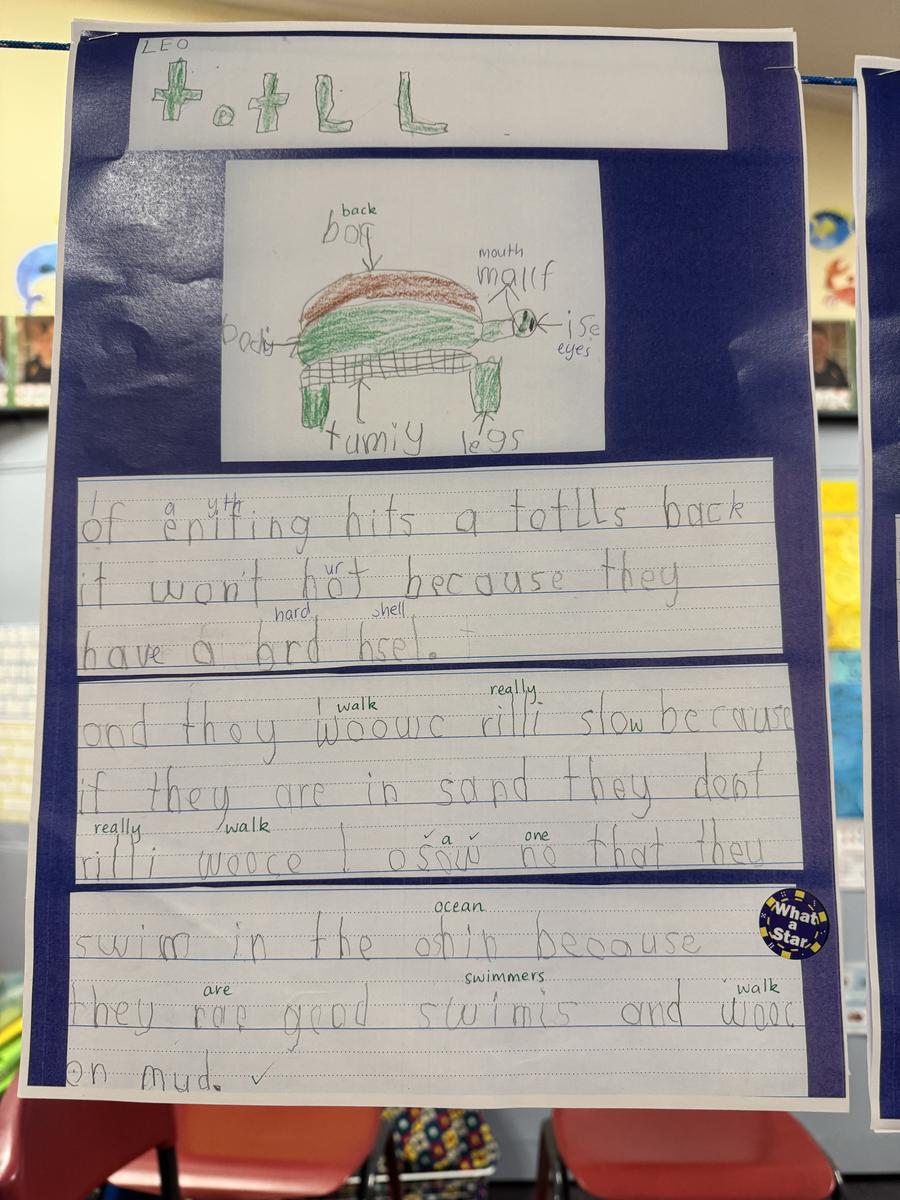 LEO
t.tLL
back
baq
mouth
mallf
body
ise
eyes
tumiy
legs
I a yth
of eniting hits a totlls back
ur
it won't hot because they
hard shell
have a brd hsel.
walk really
and they woowc rilli slow because
if they are in sand they dont
really walk a one
rilli wooce I osow no that they
ocean
swim in the oshin because
What
a
Star
are swimmers walk
they rae good swimis and wooc
on mud.